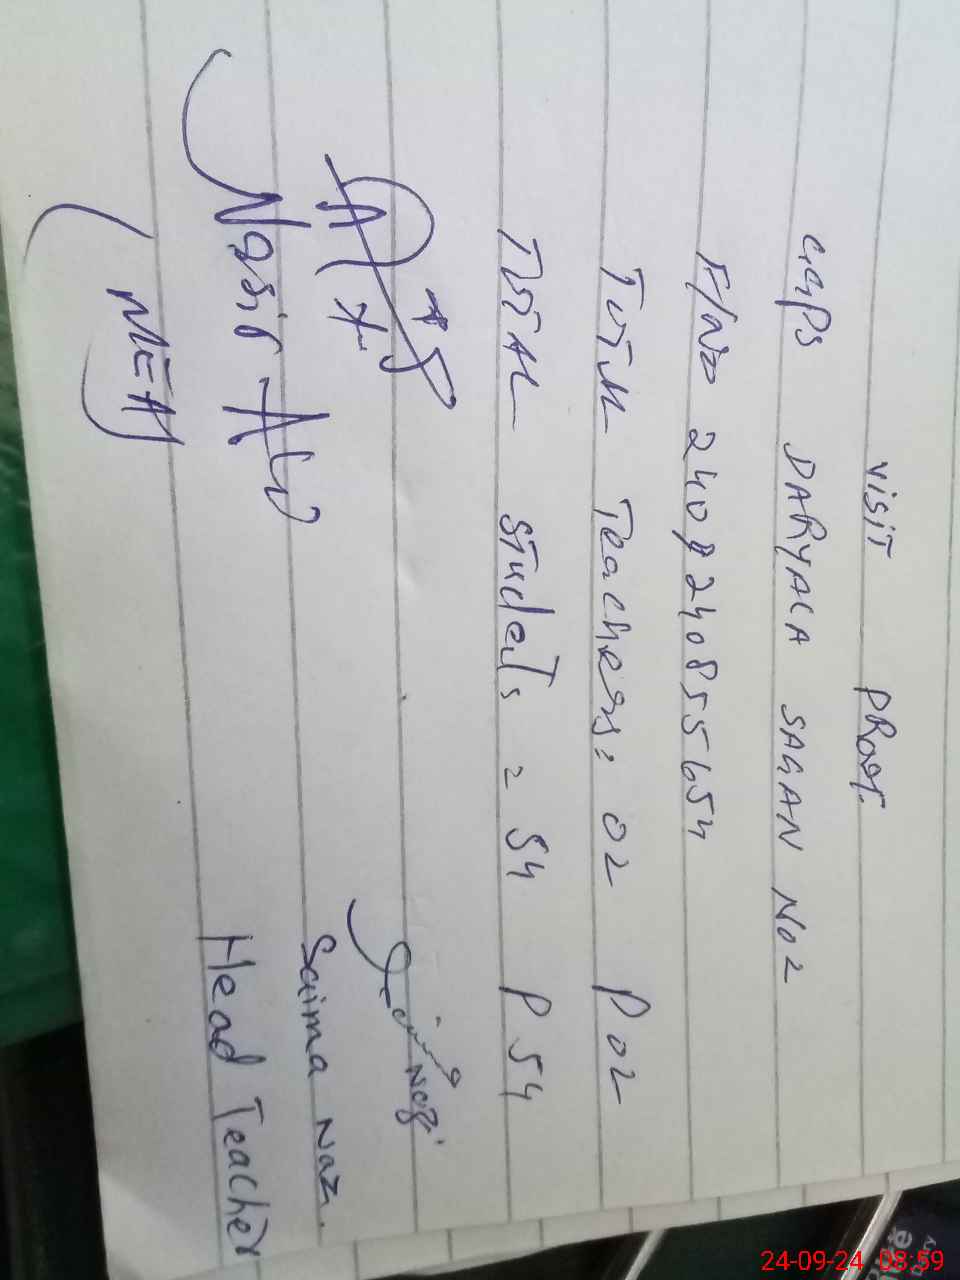 visit PRoof.
GGPS DARYALA SAGAN No 2
F/No 24082408555654
Total Teachers: 02 P 02
Total students = 54 P 54
Saima Naz.
Head Teacher
Nasir Ali
(MEA)
24-09-24 08:59